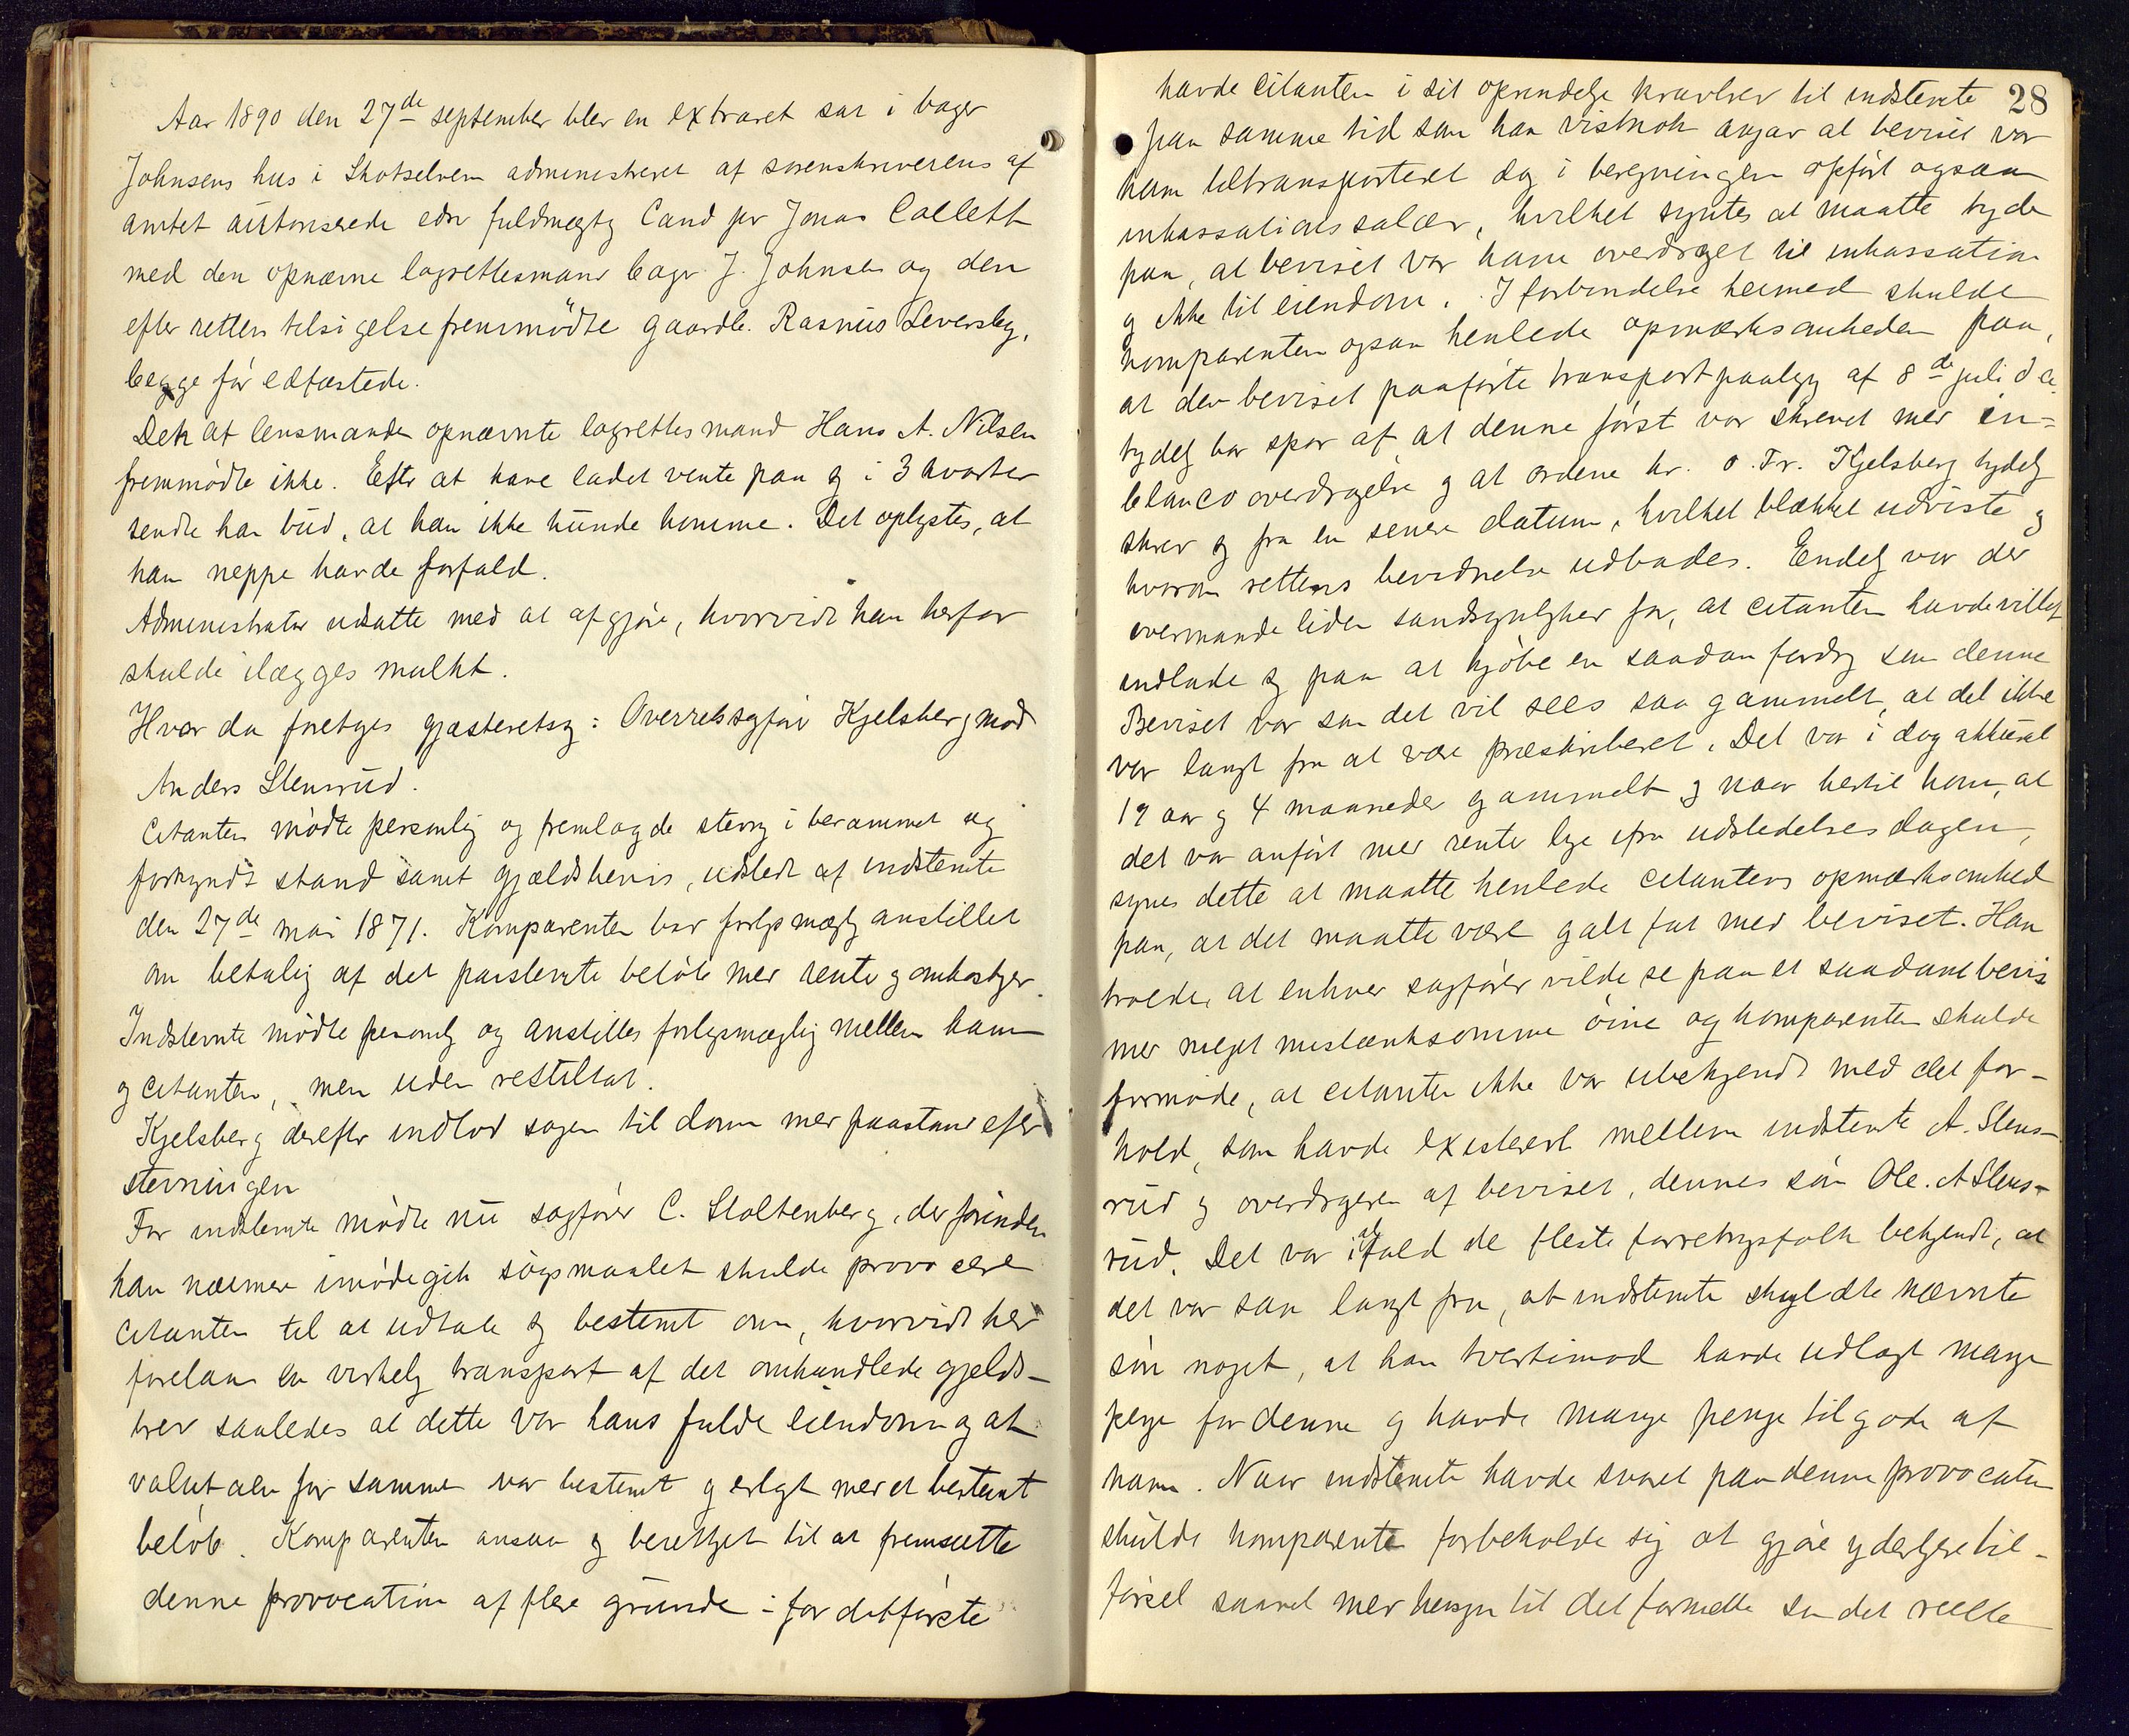 Aar 1890 den 27de september blev en extraret sat i bager
Johnsens hus i Skotselven administreret af sorenskriverens af
amtet autoriserede edsv fuldmægtg Cand jur Jonas Collett
med den opnævne lagrettesmand bager J. Johnsen og den
efter rettens tilsigelse fremmødte gaardb. Rasmus Leversby,
begge før edfæstede.
Den af lensmanden opnævnte lagrettesmand Hans A. Nilsen
fremmødte ikke. Efter at have ladet vente paa sg i 3 kvarter
sendte han bud, at han ikke kunde komme. Det oplystes, at
han neppe havde forfald.
Administrator udsatte med at afgjøre, hvorvidt han herfor
skulde ilægges mulkt.
Hvor da foretges gjæsteretssg: Overretssagfører Kjelsberg mod
Anders Stensrud.
Citanten mødte personlig og fremlagde stevng i berammet og
forkyndt stand samt gjældsbevis, udstedt af indstevnte
den 27de mai 1871. Komparenten bar forlgsmægl anstillet
om betalig af det paastevnte beløb med rente g omkostger.
Indstevnte mødte personlg og anstilles forligsmæglig mellem ham
g citanten, men uden resultat.
Kjelsberg derefter indlod sagen til dom med paastand efter
stevningen
For indstevnte mødte nu sagfører C. Stoltenberg, der førinden
han nærmere imødegik søgsmaalet skulde provocere
citanten til at udtale sg bestemt om, hvorvidt her
forelaa en virkelg transport af det omhandlede gjelds-
brev saaledes at dette var hans fulde eiendom og at
valutaen for samme var bestemt g erlagt med et bestemt
beløb. Komparenten ansaa sg berettget til at fremsætte
denne provocation af flere grunde - for det første
28
havde citanten i sit oprindelge kravbrev til indstevnte
paa samme tid som han vistnok angav at beviset var
ham tiltransporteret dog i beregningen opført ogsaa
inkassationssalær, hvilket syntes at maatte tyde
paa, at beviset var ham overdraget til inkassation
g ikke til eiendom. I forbindelse hermed skulde
komparenten ogsaa henlede opmærksomheden paa,
at den beviset paaførte transportpaategng af 8de juli d.a.
tydelg bar spor af, at denne først var skrevet med in-
blanco overdragelse g at ordene hr. o. Fr. Kjelsberg tydelg
skrev sg fra en senere datum, hvilket blækket udviste g
hvorom rettens bevidnelse udbades. Endelg var der
overmaade liden sandsynlghed for, at citanten havde villet
indlade sg paa at kjøbe en saadan fordrg som denne
Beviset var som det vil sees saa gammelt, at det ikke
var langt fra at være præskriberet. Det var i dag akkurat
19 aar g 4 maaneder gammelt g naar hertil kom, at
det var anført med rente lge ifra udstedelsesdagen,
synes dette at maatte henlede citantens opmærksomhed
paa, at det maatte være galt fat med beviset. Han
troede, at enhver sagfører vilde se paa et saadant bevis
med meget mistænksomme øine og komparenten skulde
formode, at citanten ikke var ubekjendt med det for-
hold, som havde existeret mellem indstevnte A. Stens-
rud g overdrageren af beviset, dennes søn Ole. A Stens-
rud. Det var ialfald de fleste forretngsfolk bekjendt, at
det var saa langt fra, at indstevnte skyldte nævnte
søn noget, at han tvertimod havde udlagt mange
penge for denne g havde mange penge tilgode af
ham. Naar indstevnte havde svaret paa denne provocation
skulde komparenten forbeholde sig at gjøre yderlgere til-
førsel saavel med hensyn til det formelle som det reelle